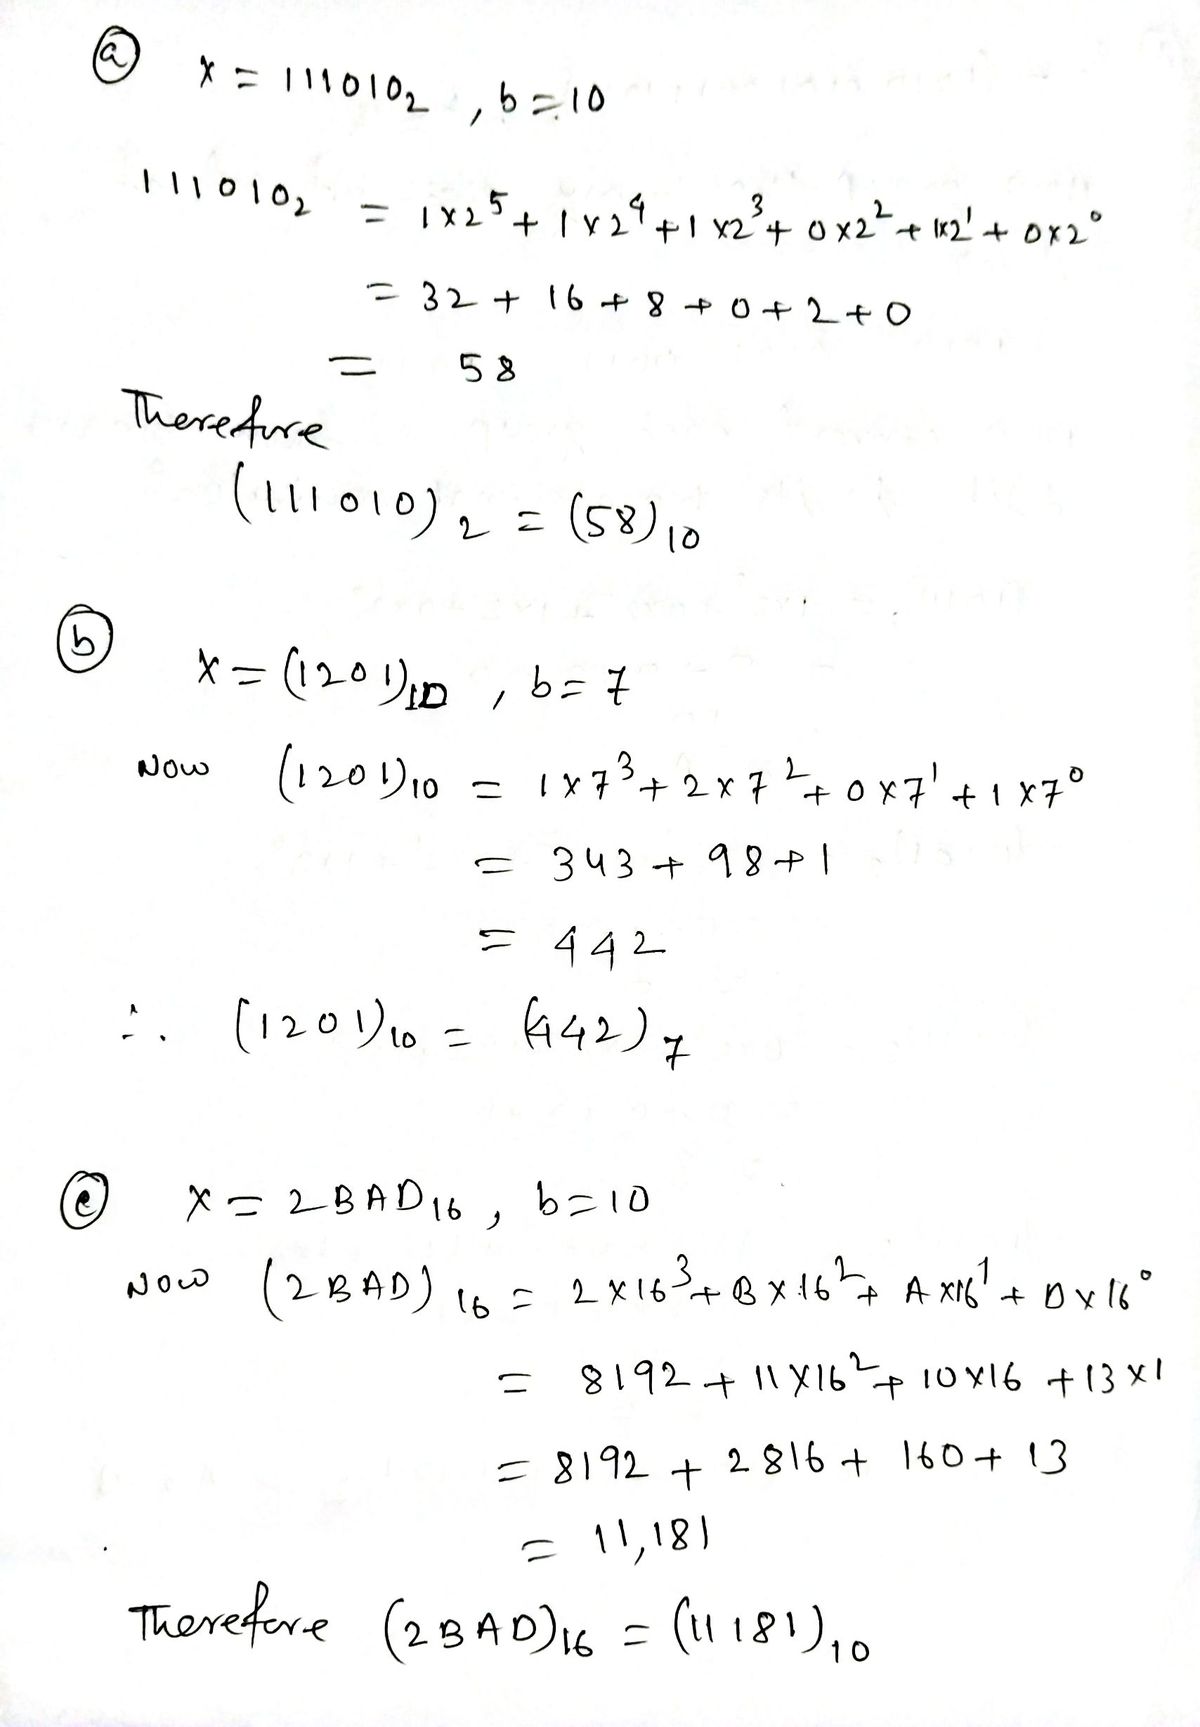 ⓐ x = 111010₂ , b = 10
111010₂ = 1×2⁵ + 1×2⁴ + 1×2³ + 0×2² + 1×2¹ + 0×2⁰
= 32 + 16 + 8 + 0 + 2 + 0
= 58
Therefore
(111010)₂ = (58)₁₀
ⓑ x = (1201)₁₀ , b = 7
Now (1201)₁₀ = 1×7³ + 2×7² + 0×7¹ + 1×7⁰
= 343 + 98 + 1
= 442
∴ (1201)₁₀ = (442)₇
ⓔ x = 2BAD₁₆ , b = 10
Now (2BAD)₁₆ = 2×16³ + B×16² + A×16¹ + D×16⁰
= 8192 + 11×16² + 10×16 + 13×1
= 8192 + 2816 + 160 + 13
= 11,181
Therefore (2BAD)₁₆ = (11181)₁₀